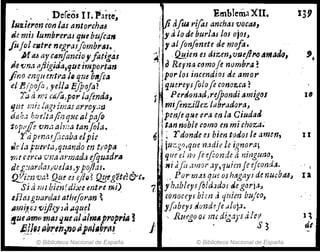 Defeos II. Parte,
luzieron con las antorchas
de mis lumbreras que buscan
su sol entre negras sombras.
Mas ay cansancio y fatiga
de vna afligida, que importan
sino encuentra lo que busca
el Esposo, y ella Esposa?
Ta à mi casa, por la senda,
que mis lagrimas arroyas
daba buelta, sin que al passo
topasse vna alma tan sola.
T apenas sacaba el pie
de la puerta, quando en tropa
me cerca vna armada esquadra
de guardas, velas, y postas.
Quien và? Que es esso? Que gête &c.
Si à mi bien! dixe entre mi)
ellas guardas assi honran
amigos vistes ya aquel
que amo mas que al alma propria?
Ellos abren, no à palabras
© Biblioteca Nacional de España
Emblema XII. 139
si à sus risas anchas vocas,
y à lo de burlas los ojos,
y al sonsonete de mofa.
Quien es dizen, vuestro amado, 9.
ò Reyna como se nombra?
por los incendios de amor
quereys solo se conozca?
Perdonad, respondi amigos 10
mi senzillez labradora,
pense que era en la Ciudad
tan noble como en mi choza.
Y donde es bien todos le amen, 11
juzgo, que nadie le ignora,
que el no se esconde à ninguno,
ni à su amor ay, quien se esconda.
Por mas que os hagays de nuebas, 12
y hableys soldados de gorja,
conoceys bien à quien busco,
y sabeys donde se aloja.
Ruego os me digays à le 13
S 3 de
© Biblioteca Nacional de España